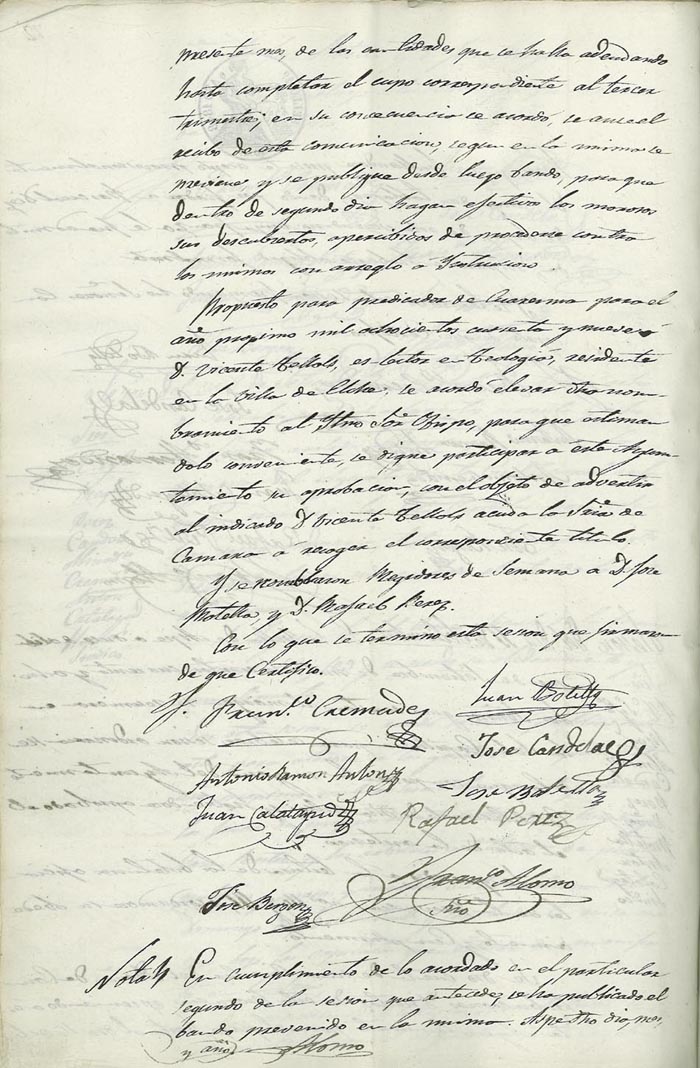 presente mes, de las cantidades que se halla adeudando
hasta completar el cupo correspondiente al tercer
trimestre; en su consecuencia se acordó, se acuse el
recibo de esta comunicacion, segun en la misma se
previene, y se publique desde luego bando, para que
dentro de segundo dia hagan efectivos los morosos
sus descubiertos, apercibidos de procederse contra
los mismos con arreglo á Instruccion.
Propuesto para predicador de Cuaresma para el
año proximo mil ochocientos cuarenta y nueve á
D. Vicente Tellols, es-lector en Teologia, residente
en la Villa de Elche, se acordó elevar dho nom-
bramiento al Iltmo Sor. Obispo, para que estiman
dolo conveniente, se digne participar a este Ayun-
tamiento su aprobacion, con el objeto de advertir
al indicado D. Vicente Tellols acuda la Sria de
Camara á recoger el correspondiente titulo.
Y se nombraron Regidores de Semana a D. Jose
Botella, y D. Rafael Perez.
Con lo que se termino esta sesion que firman
de que Certifico.
Franco. Cremades
Juan Botella
Jose Candela
Antonio Ramon Antón
Jose Botella
Juan Calatayud
Rafael Perez
Franco Alomo
Srio
Jose
Nota
En cumplimiento de lo acordado en el particular
segundo de la sesion que antecede, se ha publicado el
bando prevenido en la misma. Aspe dho dia, mes,
y año
Alomo